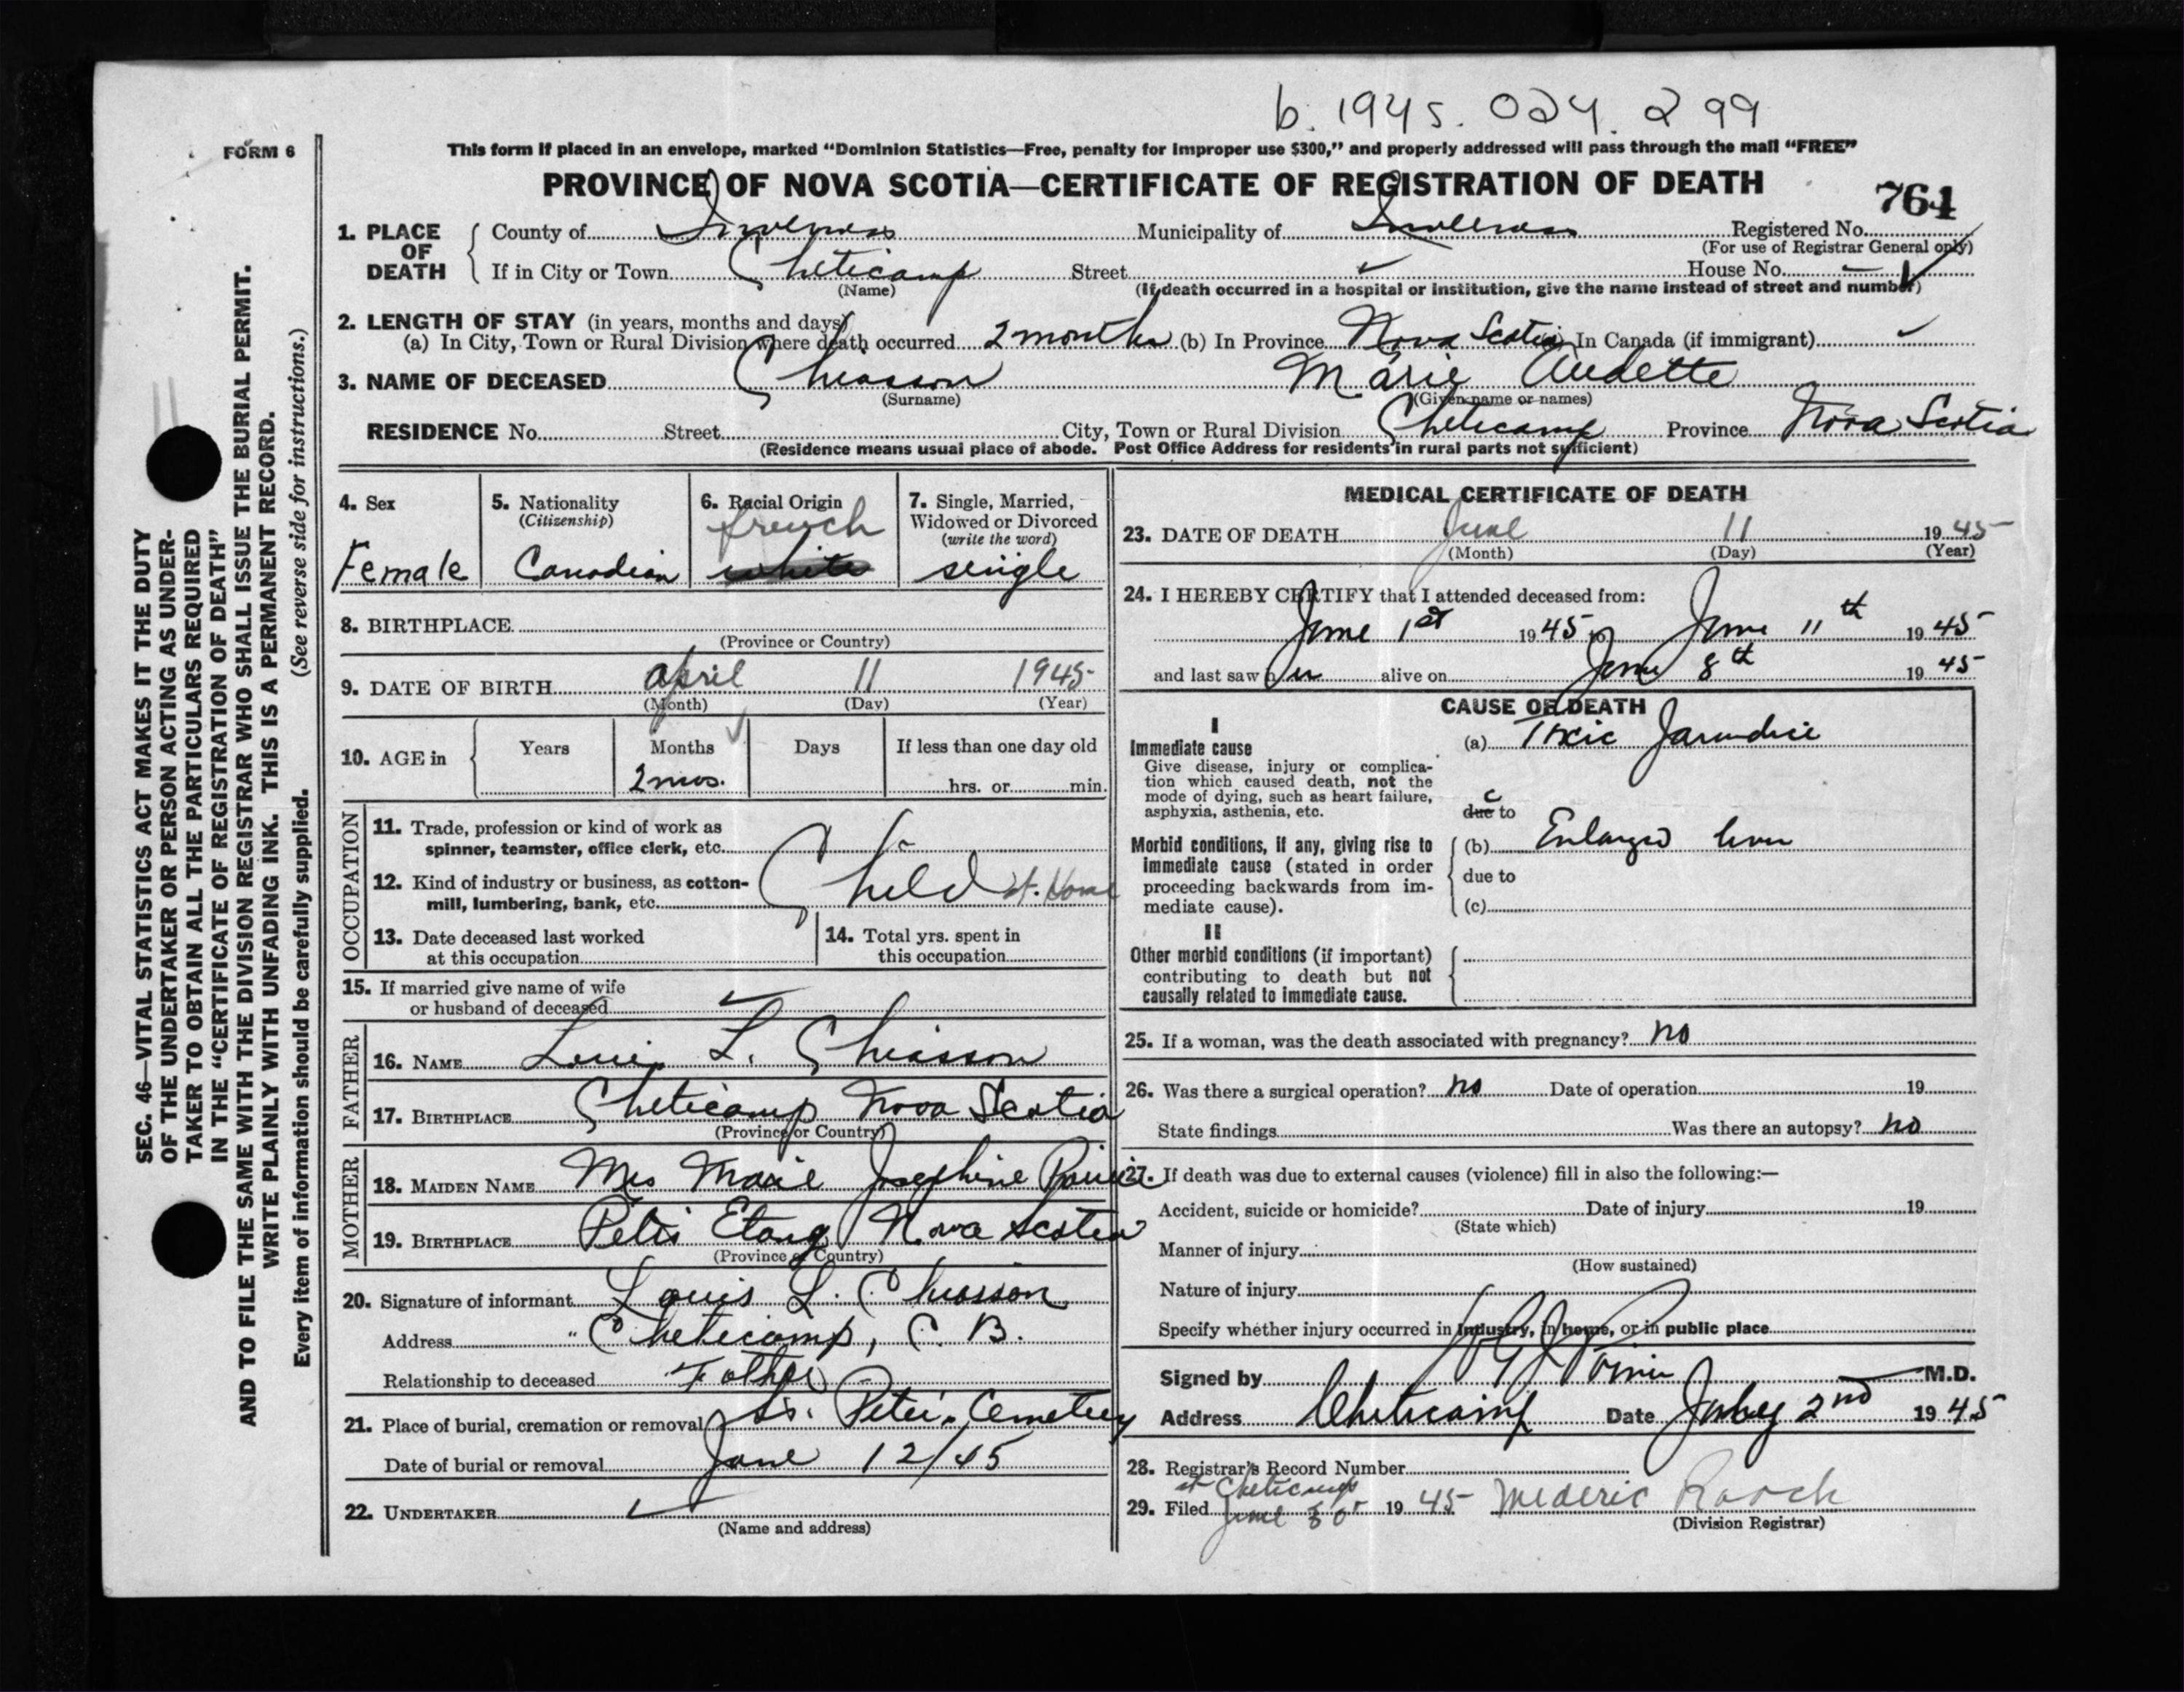 b. 1945. 024. 299
FORM 6
This form if placed in an envelope, marked "Dominion Statistics—Free, penalty for improper use $300," and properly addressed will pass through the mail "FREE"
PROVINCE OF NOVA SCOTIA—CERTIFICATE OF REGISTRATION OF DEATH
764
1. PLACE OF DEATH
County of Inverness Municipality of Inverness Registered No.
(For use of Registrar General only)
If in City or Town Cheticamp Street House No. –
(Name) (If death occurred in a hospital or institution, give the name instead of street and number)
2. LENGTH OF STAY (in years, months and days)
(a) In City, Town or Rural Division where death occurred 2 months (b) In Province Nova Scotia In Canada (if immigrant)
3. NAME OF DECEASED Chiasson Marie Audette
(Surname) (Given name or names)
RESIDENCE No. Street City, Town or Rural Division Cheticamp Province Nova Scotia
(Residence means usual place of abode. Post Office Address for residents in rural parts not sufficient)
4. Sex
Female
5. Nationality
(Citizenship)
Canadian
6. Racial Origin
french
white
7. Single, Married,
Widowed or Divorced
(write the word)
single
8. BIRTHPLACE
(Province or Country)
9. DATE OF BIRTH April 11 1945
(Month) (Day) (Year)
10. AGE in Years Months Days If less than one day old
2 mos. hrs. or min.
OCCUPATION
11. Trade, profession or kind of work as
spinner, teamster, office clerk, etc.
12. Kind of industry or business, as cotton-
mill, lumbering, bank, etc. Child at Home
13. Date deceased last worked
at this occupation
14. Total yrs. spent in
this occupation
15. If married give name of wife
or husband of deceased
FATHER
16. NAME Louis L. Chiasson
17. BIRTHPLACE Cheticamp Nova Scotia
(Province or Country)
MOTHER
18. MAIDEN NAME Mrs Marie Josephine
19. BIRTHPLACE Etang Nova Scotia
(Province or Country)
20. Signature of informant Louis L. Chiasson
Address " Cheticamp, C. B.
Relationship to deceased Father
21. Place of burial, cremation or removal St. Peter's Cemetery
Date of burial or removal June 12/45
22. UNDERTAKER
(Name and address)
MEDICAL CERTIFICATE OF DEATH
23. DATE OF DEATH June 11 19 45
(Month) (Day) (Year)
24. I HEREBY CERTIFY that I attended deceased from:
June 1st 19 45 to June 11th 19 45
and last saw her alive on June 8th 19 45
CAUSE OF DEATH
I
Immediate cause
Give disease, injury or complica-
tion which caused death, not the
mode of dying, such as heart failure,
asphyxia, asthenia, etc.
(a) Toxic Jaundice
c
due to
Morbid conditions, if any, giving rise to
immediate cause (stated in order
proceeding backwards from im-
mediate cause).
(b) Enlarged liver
due to
(c)
II
Other morbid conditions (if important)
contributing to death but not
causally related to immediate cause.
25. If a woman, was the death associated with pregnancy? no
26. Was there a surgical operation? no Date of operation 19
State findings Was there an autopsy? no
27. If death was due to external causes (violence) fill in also the following:—
Accident, suicide or homicide? Date of injury 19
(State which)
Manner of injury
(How sustained)
Nature of injury
Specify whether injury occurred in industry, in home, or in public place
Signed by M.D.
Address Cheticamp Date July 2nd 19 45
28. Registrar's Record Number
at Cheticamp
29. Filed June 30 19 45 Mederic Roach
(Division Registrar)
SEC. 46—VITAL STATISTICS ACT MAKES IT THE DUTY
OF THE UNDERTAKER OR PERSON ACTING AS UNDER-
TAKER TO OBTAIN ALL THE PARTICULARS REQUIRED
IN THE "CERTIFICATE OF REGISTRATION OF DEATH"
AND TO FILE THE SAME WITH THE DIVISION REGISTRAR WHO SHALL ISSUE THE BURIAL PERMIT.
WRITE PLAINLY WITH UNFADING INK. THIS IS A PERMANENT RECORD.
Every item of information should be carefully supplied. (See reverse side for instructions.)